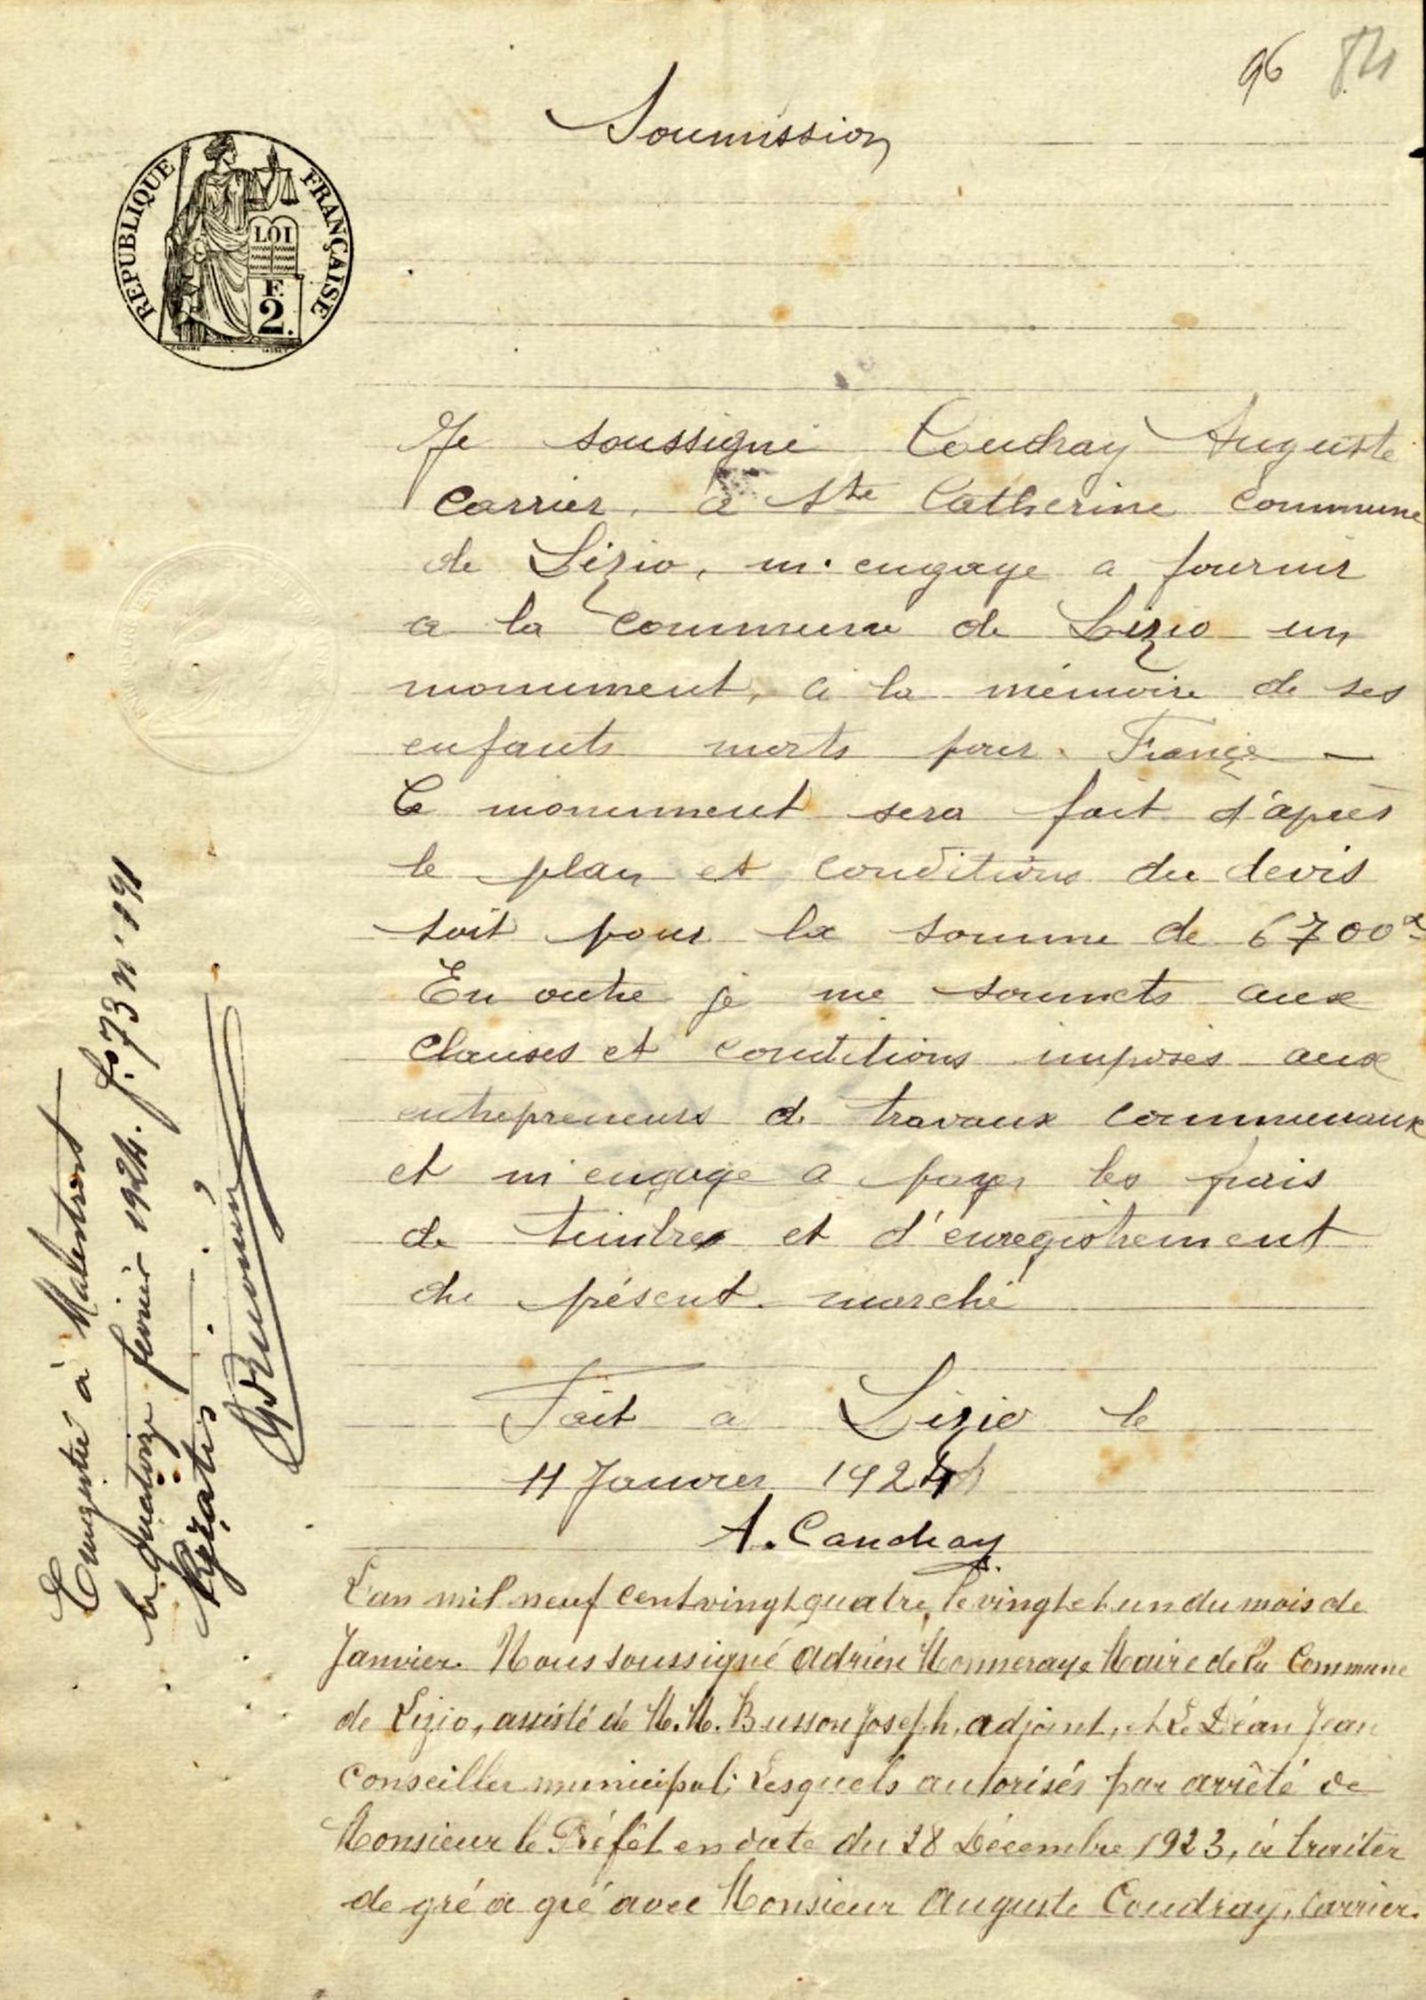 96 84
Soumission
REPUBLIQUE FRANÇAISE
LOI
F.
2.
Je soussigné Coudray Auguste
carrier, a Ste Catherine commune
de Lizio, m'engage a fournir
a la commune de Lizio un
monument, a la mémoire de ses
enfants morts pour France —
Ce monument sera fait d'après
le plan et conditions du devis
soit pour la somme de 6700
En outre je me soumets aux
clauses et conditions imposés aux
entrepreneurs de travaux communaux
et m'engage a payer les frais
de timbres et d'enregistrement
du présent marché
Fait a Lizio le
11 Janvier 1924
A. Coudray
L'an mil neuf cent vingt quatre, le vingt et un du mois de
Janvier. Nous soussigné Adrien Monneraye Maire de la Commune
de Lizio, assisté de M.M. Busson Joseph, adjoint, et Le Déan Jean
conseiller municipal; Lesquels autorisés par arrêté de
Monsieur le Préfet en date du 28 Décembre 1923, à traiter
de gré a gré avec Monsieur Auguste Coudray, Carrier.
Enregistré à Malestroit
le quatorze février 1924. f° 73 n° 191